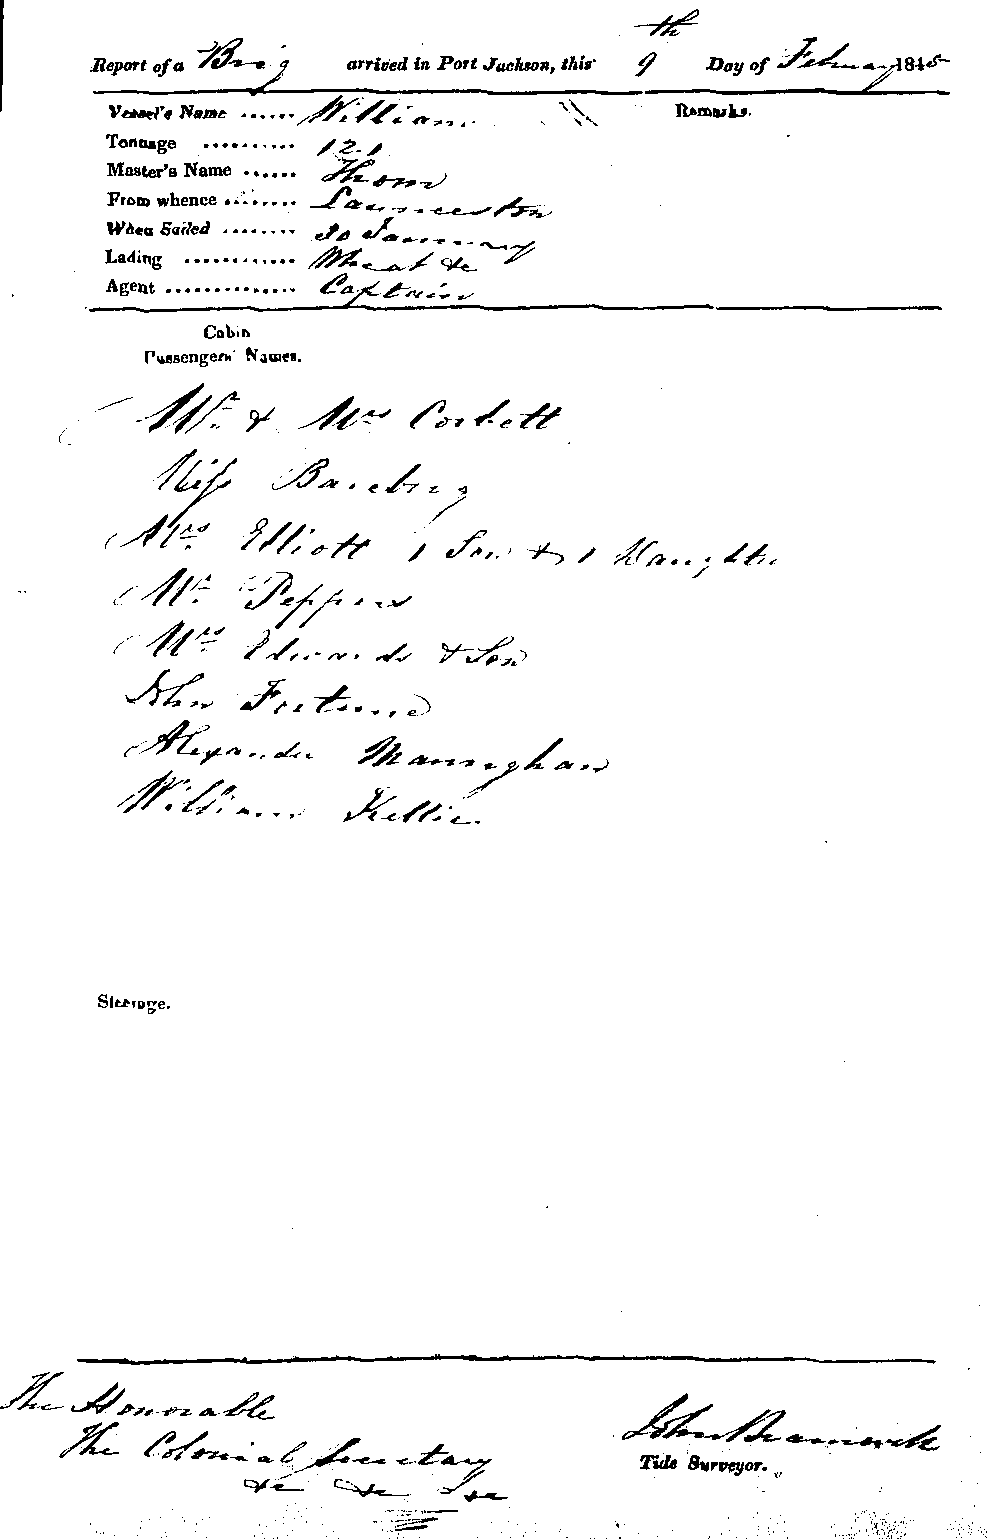 Report of a Brig arrived in Port Jackson, this 9th Day of February 1845
Vessel's Name ...... William Remarks.
Tonnage .......... 121
Master's Name ...... Thom
From whence ........ Launceston
When Sailed ........ 30 January
Lading ............ Wheat &c
Agent .............. Captain
Cabin
Passengers' Names.
Mr. & Mrs Corbett
Miss
Mrs. Elliott 1 Son & 1 Daughter
Mr. Pepper
Mrs Edwards & Son
John Fortune
Alexander
William Kellie
Steerage.
The Honorable
The Colonial Secretary
&c &c &c
John
Tide Surveyor.